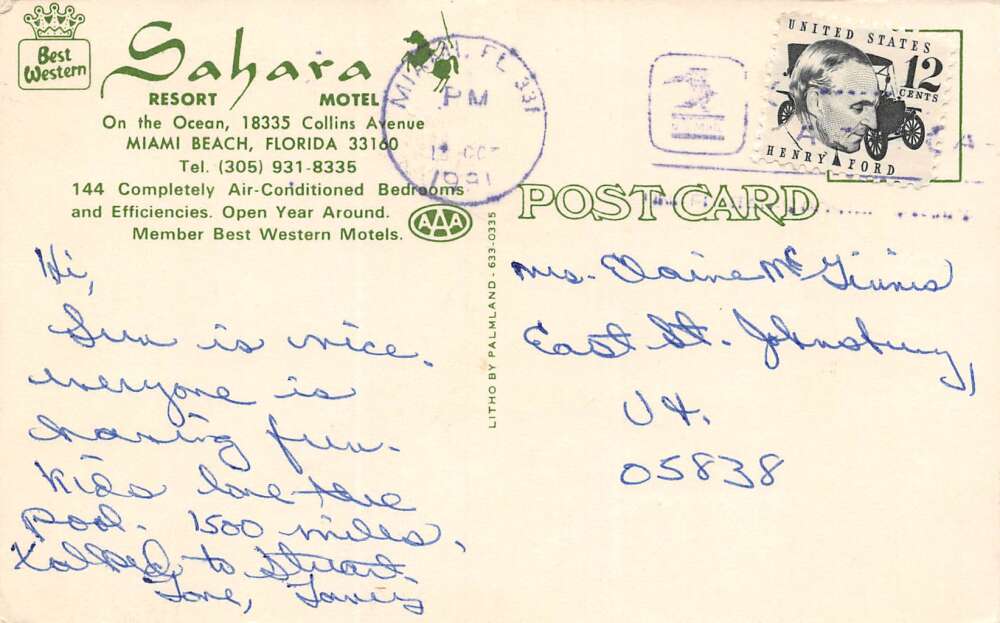 Best
Western
Sahara
RESORT MOTEL
On the Ocean, 18335 Collins Avenue
MIAMI BEACH, FLORIDA 33160
Tel. (305) 931-8335
144 Completely Air-Conditioned Bedrooms
and Efficiencies. Open Year Around.
Member Best Western Motels.
AAA
MIAMI, FL 331
PM
OCT
1981
UNITED STATES
12
CENTS
HENRY FORD
POST CARD
LITHO BY PALMLAND - 633-0335
Hi,
Sun is nice.
everyone is
having fun.
Kids love the
pool. 1500 miles,
Talked to Stuart.
Love,
Mrs. Elaine McGinnis
East St. Johnsbury,
Vt.
05838